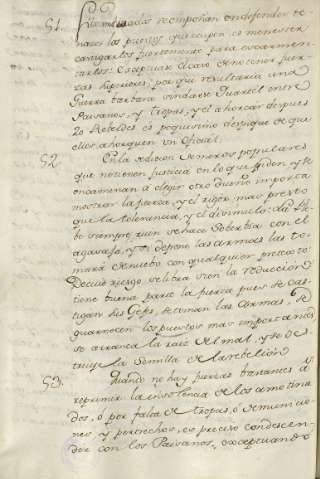 51. Si los Amotinados se empeñan en defender te-
naces los puestos que ocupen, es menester
castigarlos fuertemente para escarmen-
tarlos: Exceptuase el caso de reconocer fuer-
zas superiores; por que resultaria una
Guerra barbara sin darse Quartel entre
Paisanos, y tropas, y el ahorcar despues
20 Rebeldes es pequeño despique de que
ellos ahorquen un oficial.
52. En la sedicion de meros populares
que no tienen justicia en lo que piden y se
encaminan a elegir otro dueño importa
mostrar la fuerza, y el rigor mas presto
que la tolerancia, y el disimulo: La Ple-
be siempre ruin se hace soberbia con el
agasajo, y si depone las armas las to-
mará de nuevo con qualquier pretexto:
De cuio riesgo se libra si en la reduccion
tiene buena parte la fuerza pues se cas-
tigan los Gefes, se toman las Armas, se
guarnecen los puestos mas importantes
se arranca la raiz del mal, y se des-
truye la Semilla de la rebelion
53. Quando no hay fuerzas bastantes a
reprimir la insolencia de los amotina
dos, ó por falta de tropas, ó de municio-
nes y pertrechos, es preciso condescen-
der con los Paisanos, exceptuando